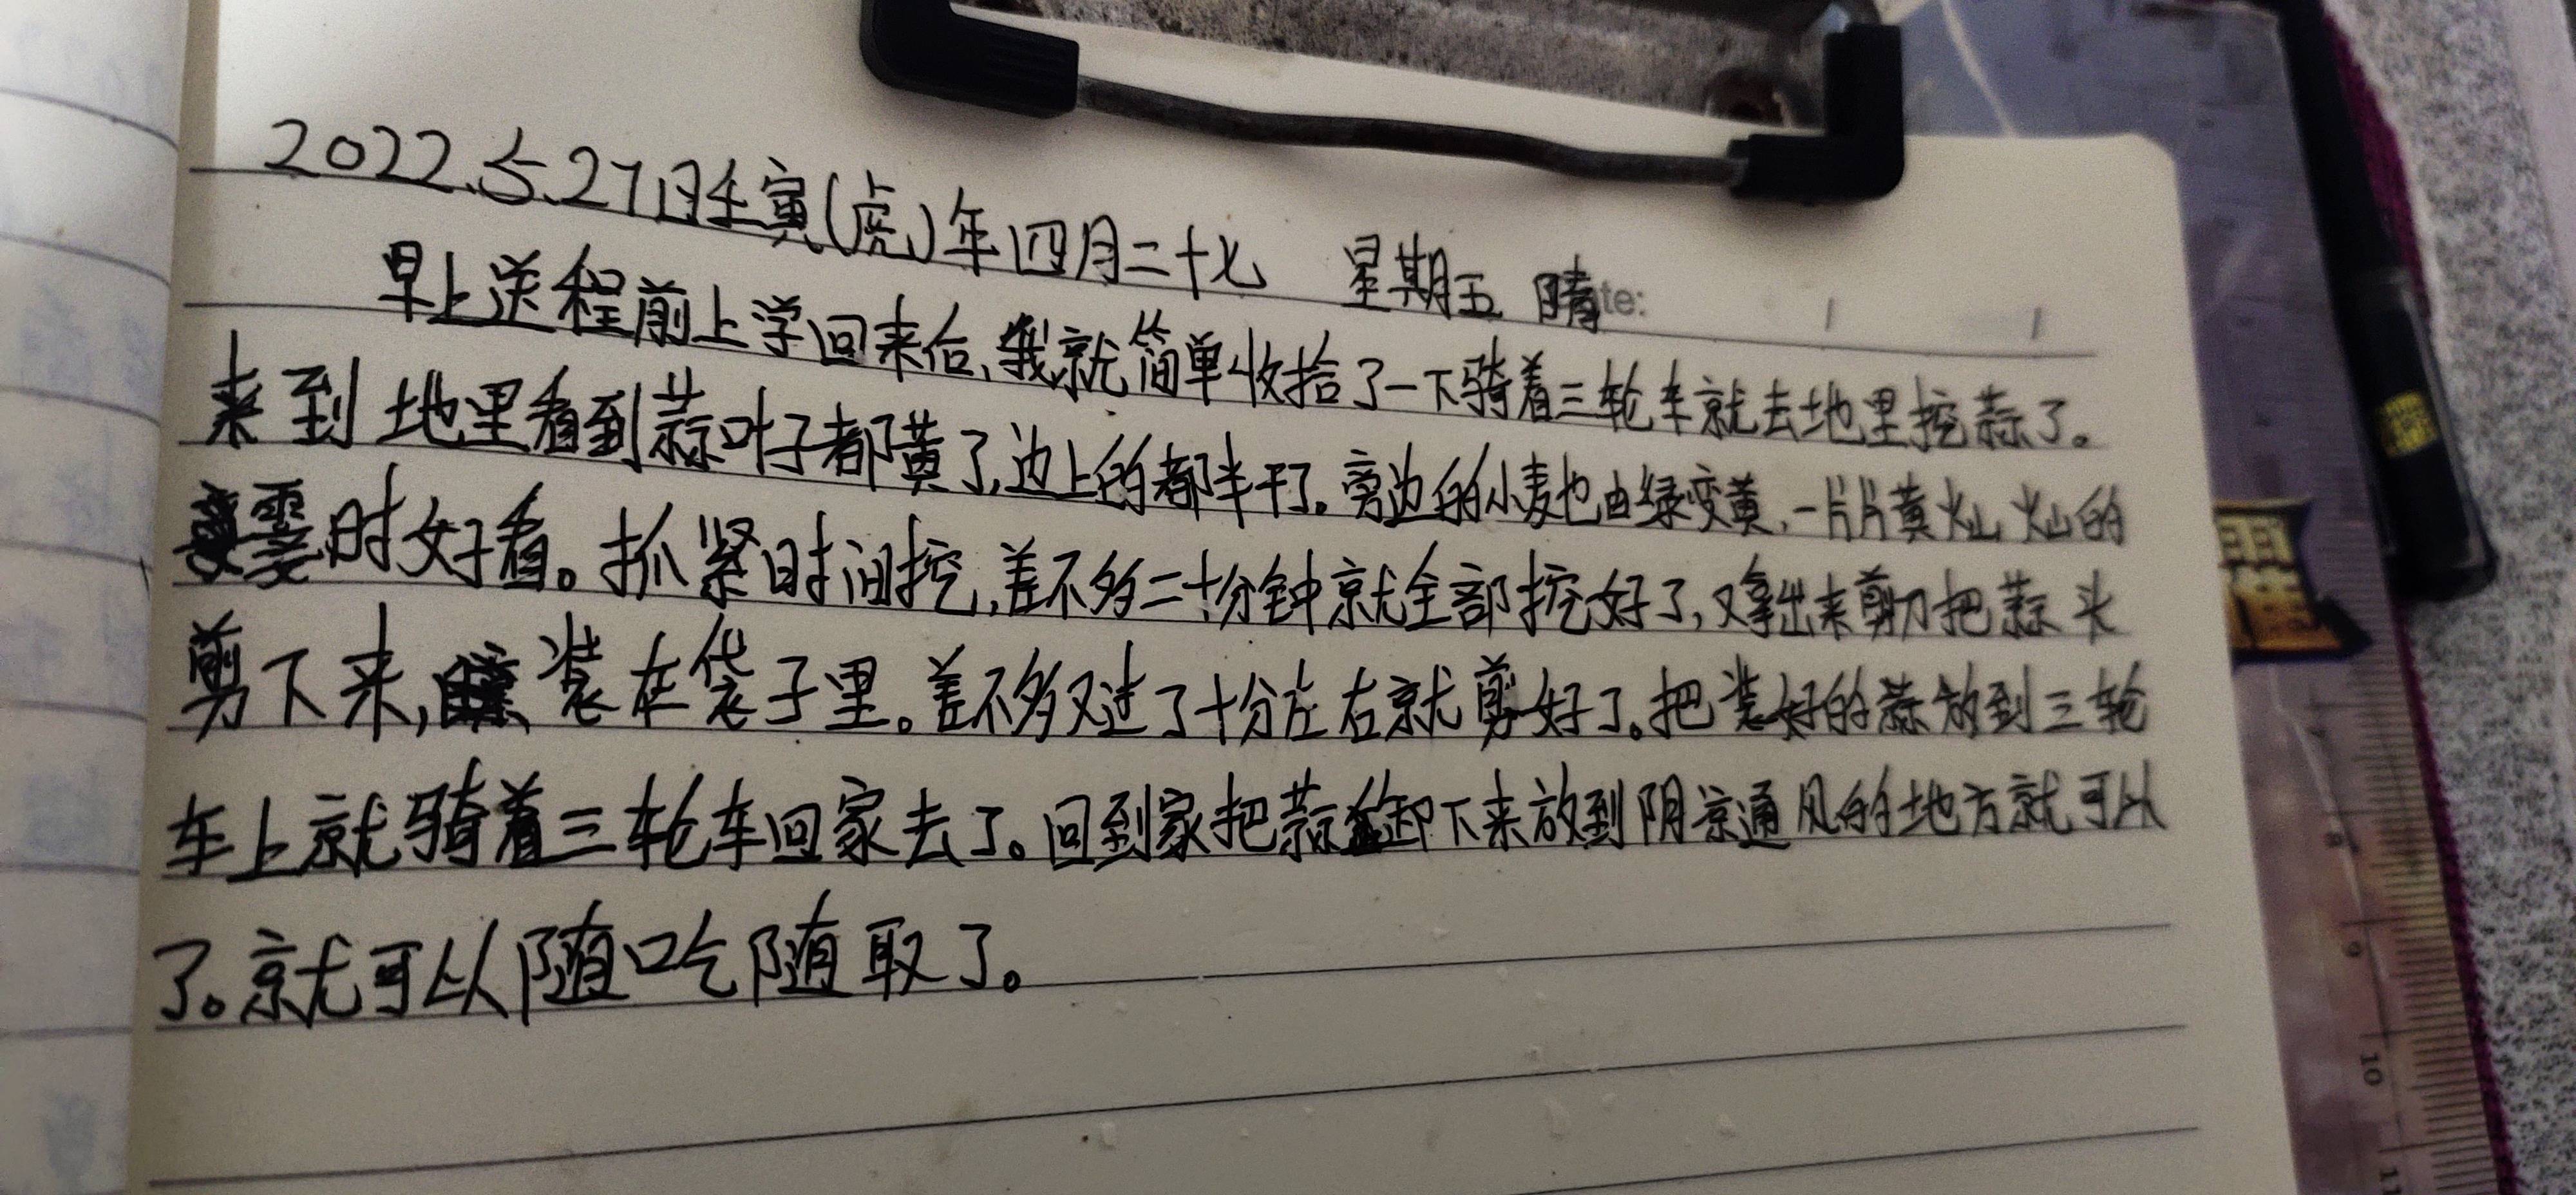 2022.5.27日壬寅(虎)年四月二十七 星期五 晴te:
早上送程前上学回来后,我就简单收拾了一下骑着三轮车就去地里挖蒜了。
来到地里看到蒜叶子都黄了,边上的都半干了。旁边的小麦也由绿变黄,一片片黄灿灿的
霎时好看。抓紧时间挖,差不多二十分钟就全部挖好了,又拿出来剪刀把蒜头
剪下来,装在袋子里。差不多又过了十分左右就剪好了。把装好的蒜放到三轮
车上就骑着三轮车回家去了。回到家把蒜卸下来放到阴凉通风的地方就可以
了。就可以随吃随取了。
8
9
10
11